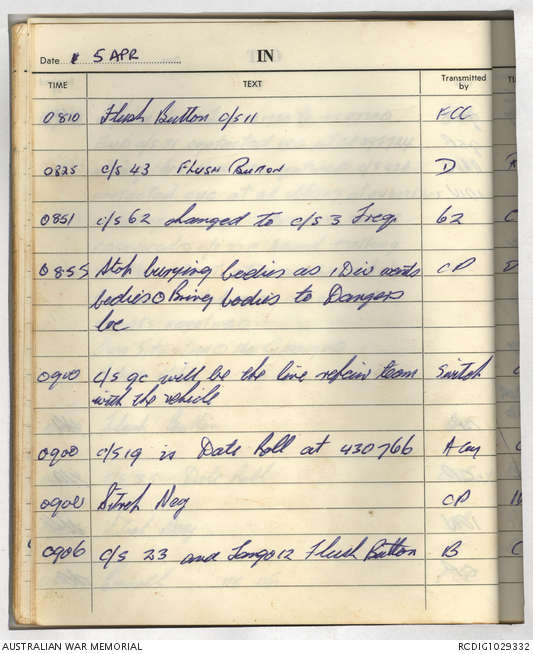 Date 5 APR IN
TIME TEXT Transmitted by
0810 Flush Button c/s 11 FCC
0825 c/s 43 FLUSH BUTTON D
0851 c/s 62 changed to c/s 3 Freq. 62
0855 Stop burying bodies as 1 Div wants CP
bodies Bring bodies to Dangers
loc
0900 c/s 9C will be the line repair team Switch
with the vehicle
0900 c/s 19 is Date Roll at 430766 A Coy
0900 Sitrep Neg CP
0906 c/s 23 and Tango 12 Flush Button B
AUSTRALIAN WAR MEMORIAL RCDIG1029332